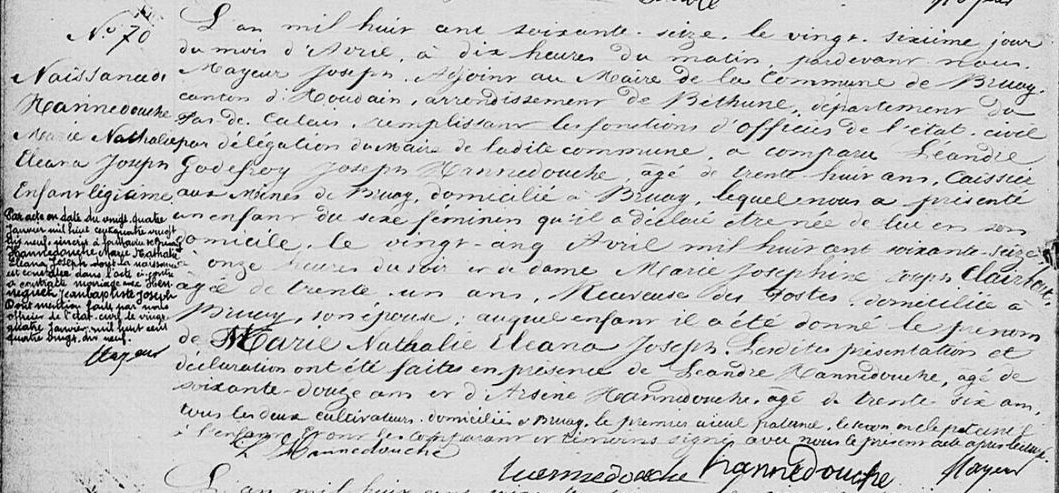 No 70
Naissance de
Hannedouche
Marie Nathalie
Eleana Joseph
Enfant légitime
Par acte en date du vingt quatre
Janvier mil huit cent quatre vingt
dix neuf, inscrit à
Hannedouche Marie Nathalie
Eléana Joseph dont la naissance
est constatée dans l'acte ci-contre
a contracté mariage avec Hen
negueth Jean baptiste Joseph
Dont mention faite par nous
officier de l'état civil le vingt
quatre Janvier mil huit cent
quatre vingt dix neuf.
Mayeur
L'an mil huit cent soixante-seize le vingt-sixième jour
du mois d'Avril, à dix heures du matin, pardevant nous
Mayeur Joseph, Adjoint au Maire de la Commune de Bruay,
canton d'Houdain, arrondissement de Béthune, département du
Pas-de-Calais, remplissant les fonctions d'Officier de l'état-civil
par délégation du Maire de ladite commune, a comparu Léandre
Godefroy Joseph Hannedouche, âgé de trente huit ans, Caissier
aux Mines de Bruay, domicilié à Bruay, lequel nous a présenté
un enfant du sexe féminin qu'il a déclaré être née de lui en son
domicile, le vingt-cinq Avril mil huit cent soixante-seize
à onze heures du soir et de dame Marie Josephine Joseph
âgée de trente-un ans, Receveuse des Postes domiciliée à
Bruay, son épouse; auquel enfant il a été donné le prénom
de Marie Nathalie Eleana Joseph. Lesdites présentation et
déclaration ont été faites en présence de Léandre Hannedouche, âgé de
soixante-douze ans et d'Arsène Hannedouche, âgé de trente-six ans,
tous les deux cultivateurs, domiciliés à Bruay, le premier aïeul paternel, le second oncle paternel
à l'enfant. Et ont les comparant et témoins signé avec nous le présent acte après lecture.
L Hannedouche
hannedouche hannedouche Mayeur
L'an mil huit cent soixante